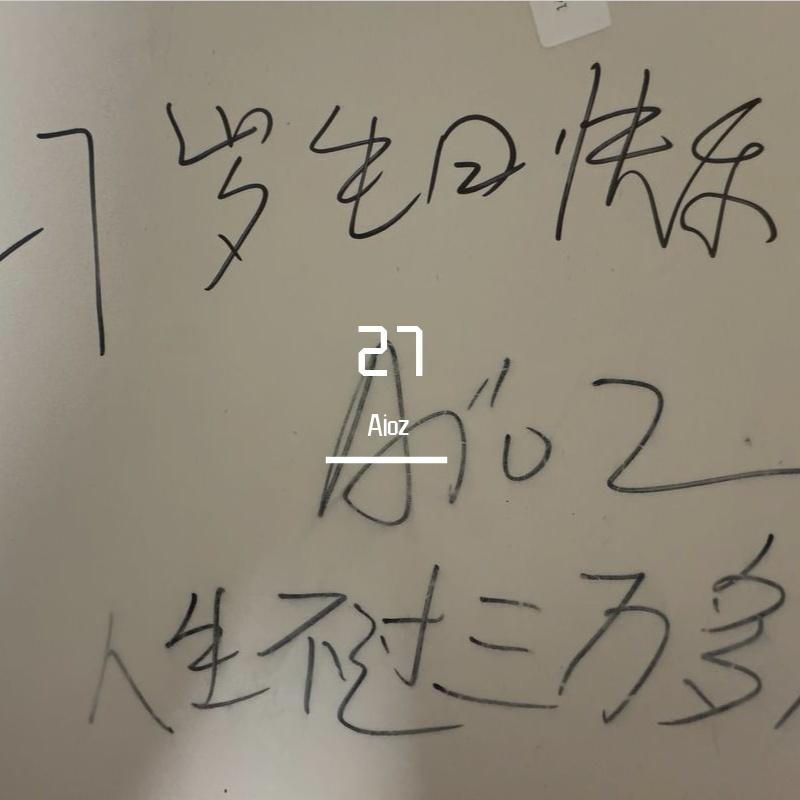 7岁生日快乐
27
Aioz
Aioz
人生不过三万多